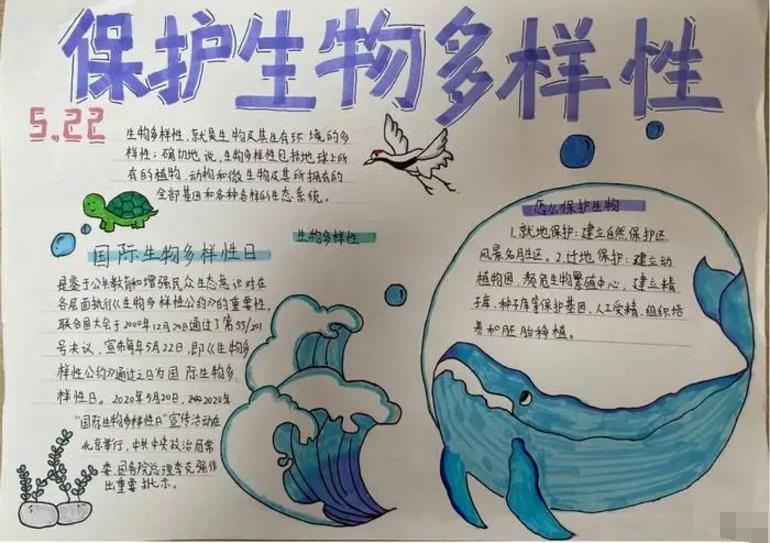 保护生物多样性
5.22
生物多样性,就是生物及其生存环境的多
样性;确切地说,生物多样性包括地球上所
有的植物、动物和微生物及其所拥有的
全部基因和各种各样的生态系统。
生物多样性
国际生物多样性日
是鉴于公共教育和增强民众生态意识对在
各层面执行《生物多样性公约》的重要性,
联合国大会于2000年12月20日通过了第55/201
号决议,宣布每年5月22日,即《生物多
样性公约》通过之日为国际生物多
样性日。2020年5月20日,2020年
“国际生物多样性日”宣传活动在
北京举行,中共中央政治局常
委、国务院总理李克强作
出重要批示。
怎么保护生物
1.就地保护:建立自然保护区、
风景名胜区。2.迁地保护:建立动
植物园、濒危生物繁殖中心,建立精
子库、种子库等保护基因,人工受精、组织培
养和胚胎移植。